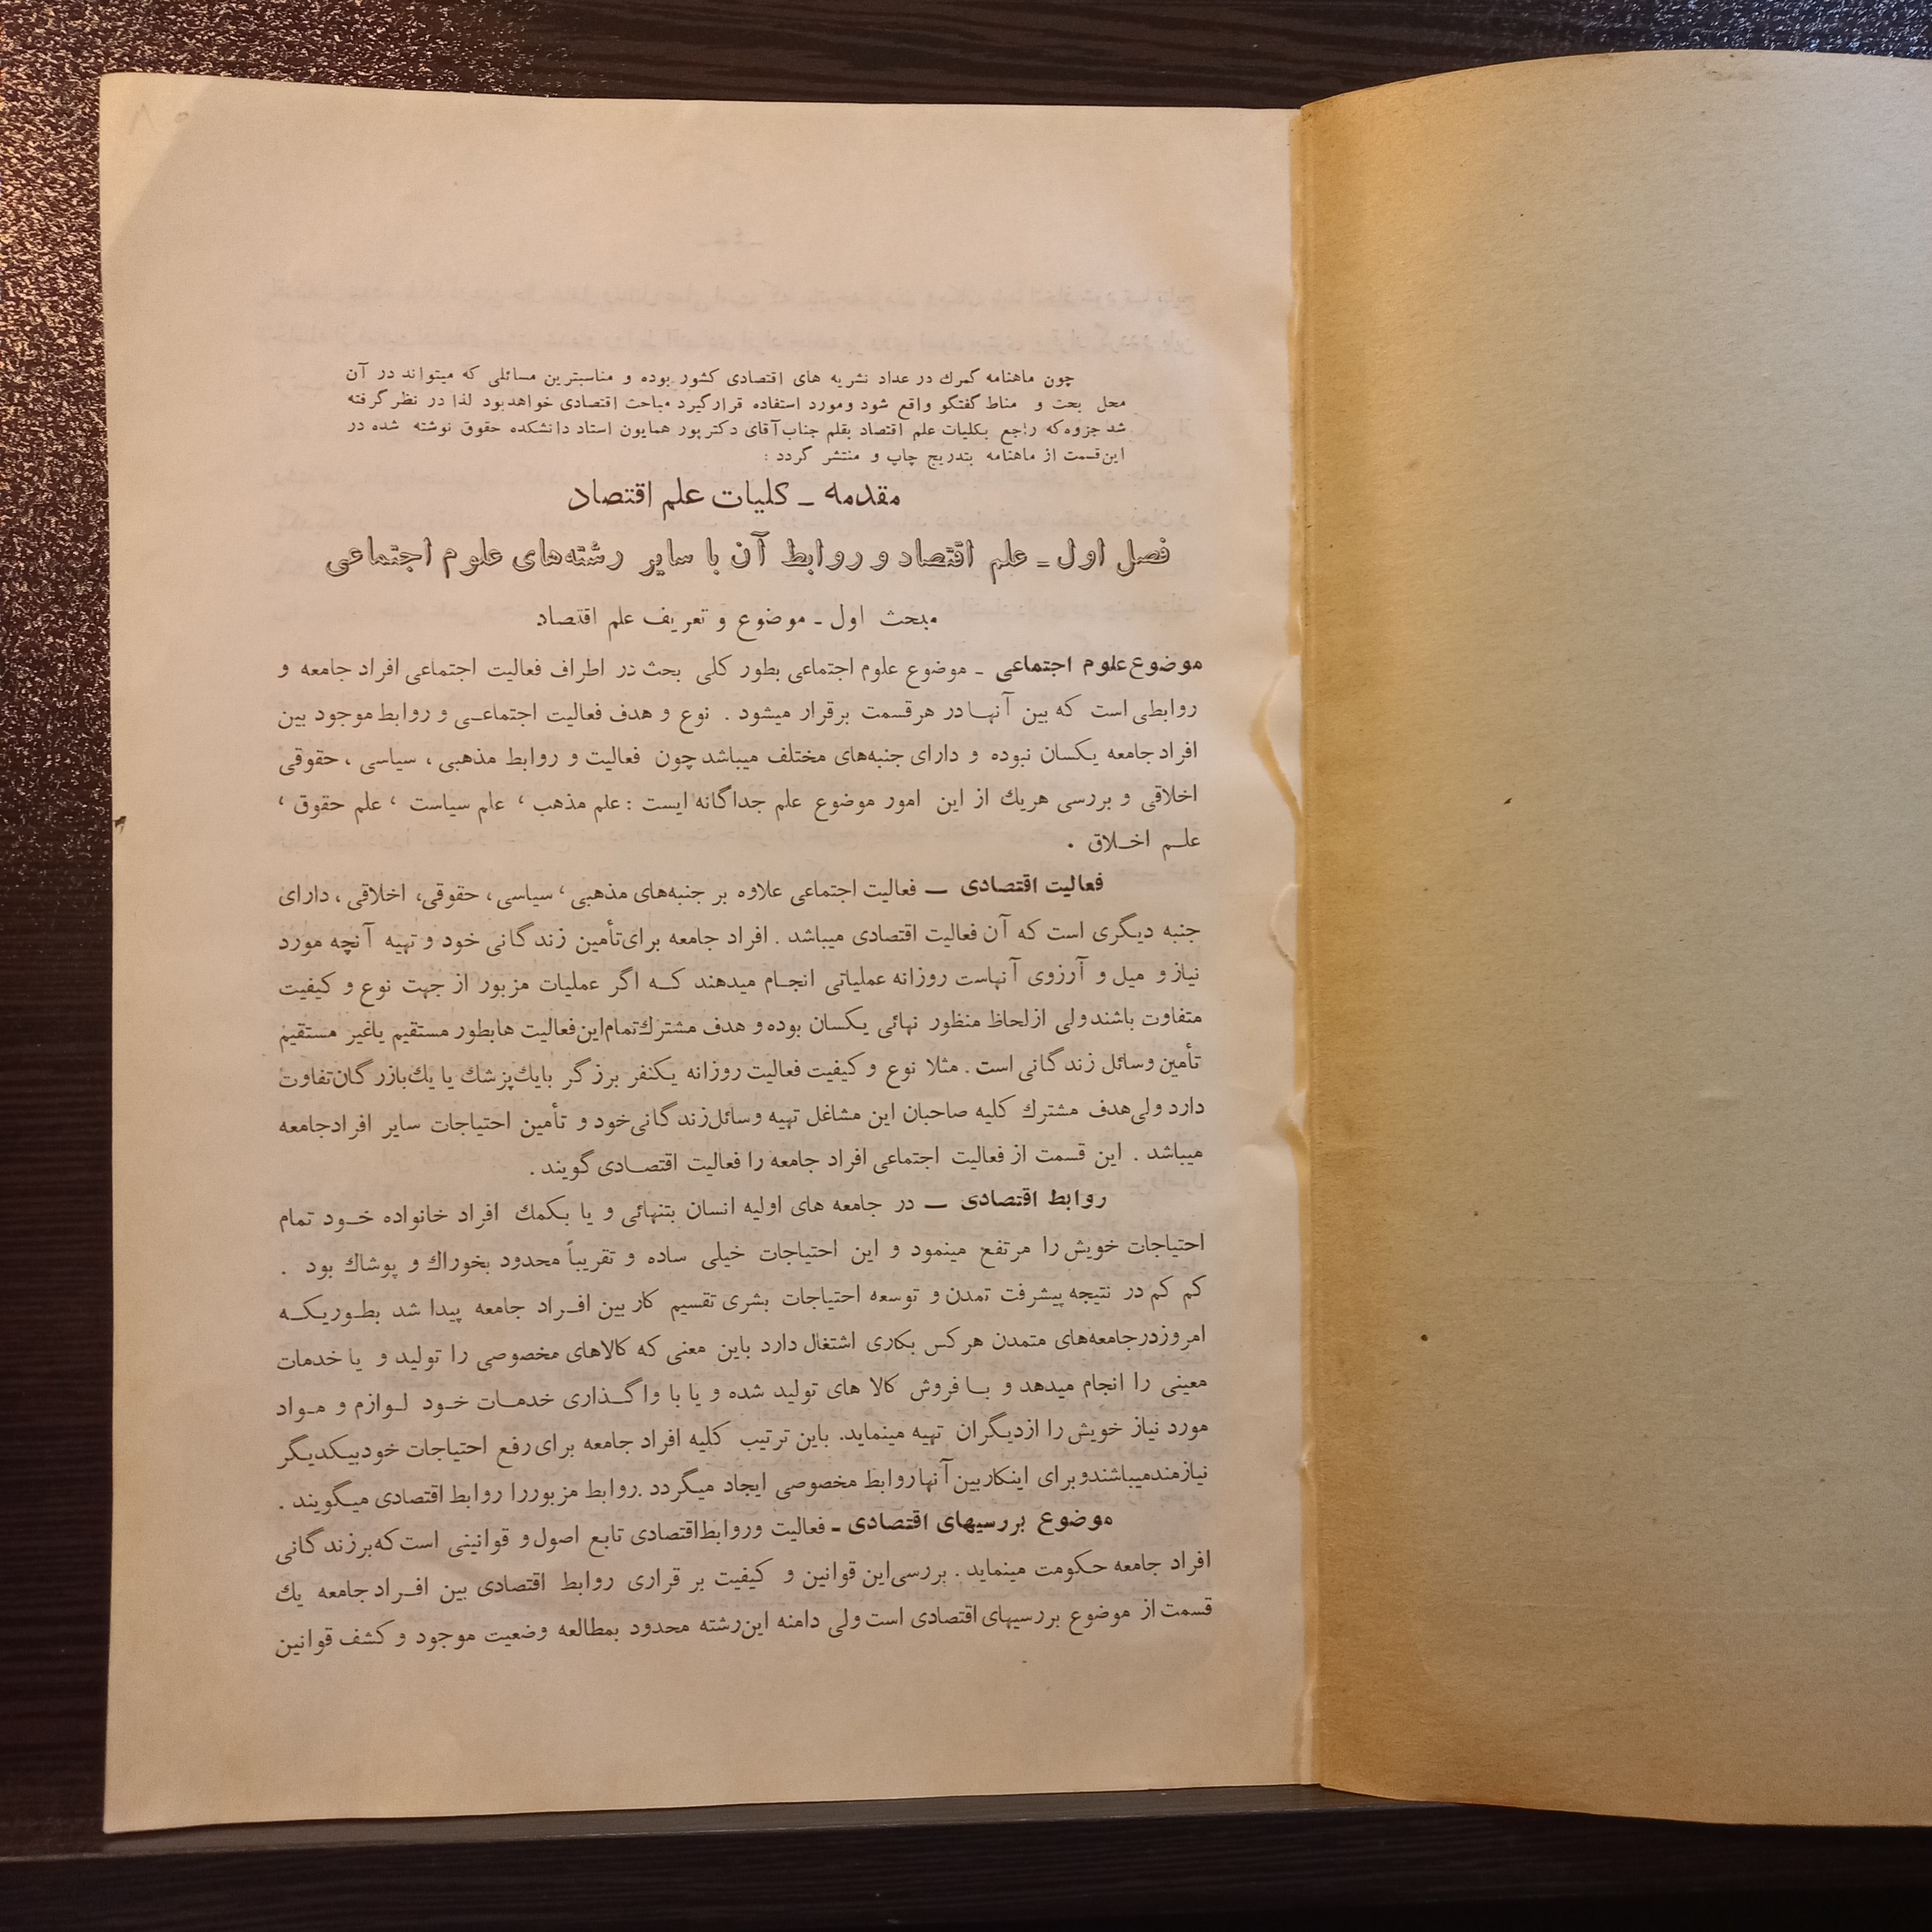 چون ماهنامه گمرك در عداد نشریه های اقتصادی کشور بوده و مناسبترین مسائلی که میتواند در آن
محل بحث و مناط گفتگو واقع شود ومورد استفاده قرارگیرد مباحث اقتصادی خواهدبود لذا در نظر گرفته
شد جزوه‌که راجع بکلیات علم اقتصاد بقلم جناب آقای دکتر پور همایون استاد دانشکده حقوق نوشته شده در
این‌قسمت از ماهنامه بتدریج چاپ و منتشر گردد :
مقدمه ـ کلیات علم اقتصاد
فصل اول ـ علم اقتصاد و روابط آن با سایر رشته‌های علوم اجتماعی
مبحث اول ـ موضوع و تعریف علم اقتصاد
موضوع علوم اجتماعی ـ موضوع علوم اجتماعی بطور کلی بحث در اطراف فعالیت اجتماعی افراد جامعه و
روابطی است که بین آنهـا در هرقسمت برقرار میشود . نوع و هدف فعالیت اجتماعـی و روابط موجود بین
افراد جامعه یکسان نبوده و دارای جنبه‌های مختلف میباشد چون فعالیت و روابط مذهبی ، سیاسی ، حقوقی
اخلاقی و بررسی هریك از این امور موضوع علم جداگانه ایست : علم مذهب ، علم سیاست ، علم حقوق ،
علـم اخـلاق .
فعالیت اقتصادی — فعالیت اجتماعی علاوه بر جنبه‌های مذهبی ، سیاسی ، حقوقی، اخلاقی ، دارای
جنبه دیگری است که آن فعالیت اقتصادی میباشد . افراد جامعه برای‌تأمین زندگانی خود و تهیه آنچه مورد
نیاز و میل و آرزوی آنهاست روزانه عملیاتی انجـام میدهند کـه اگر عملیات مزبور از جهت نوع و کیفیت
متفاوت باشندولی ازلحاظ منظور نهائی یکسان بوده و هدف مشترك‌تمام‌این‌فعالیت هابطور مستقیم یاغیر مستقیم
تأمین وسائل زندگانی است . مثلا نوع و کیفیت فعالیت روزانه یکنفر برزگر بایك‌پزشك یا یك‌بازرگان‌تفاوت
دارد ولی‌هدف مشترك کلیه صاحبان این مشاغل تهیه وسائل‌زندگانی‌خود و تأمین احتیاجات سایر افرادجامعه
میباشد . این قسمت از فعالیت اجتماعی افراد جامعه را فعالیت اقتصـادی گویند .
روابط اقتصادی — در جامعه های اولیه انسان بتنهائی و یا بکمك افراد خانواده خـود تمام
احتیاجات خویش را مرتفع مینمود و این احتیاجات خیلی ساده و تقریباً محدود بخوراك و پوشاك بود .
کم کم در نتیجه پیشرفت تمدن و توسعه احتیاجات بشری تقسیم کار بین افـراد جامعه پیدا شد بطـوریکـه
امروزدرجامعه‌های متمدن هرکس بکاری اشتغال دارد باین معنی که کالاهای مخصوصی را تولید و یا خدمات
معینی را انجام میدهد و بـا فروش کالا های تولید شده و یا با واگـذاری خدمـات خـود لـوازم و مـواد
مورد نیاز خویش را ازدیگران تهیه مینماید. باین ترتیب کلیه افراد جامعه برای رفع احتیاجات خودبیکدیگر
نیازمندمیباشندوبرای اینکاربین آنهاروابط مخصوصی ایجاد میگردد .روابط مزبوررا روابط اقتصادی میگویند .
موضوع بررسیهای اقتصادی ـ فعالیت وروابط‌اقتصادی تابع اصول و قوانینی است‌که‌برزندگانی
افراد جامعه حکومت مینماید . بررسی‌این قوانین و کیفیت بر قراری روابط اقتصادی بین افـراد جامعه یك
قسمت از موضوع بررسیهای اقتصادی است ولی دامنه این‌رشته محدود بمطالعه وضعیت موجود و کشف قوانین